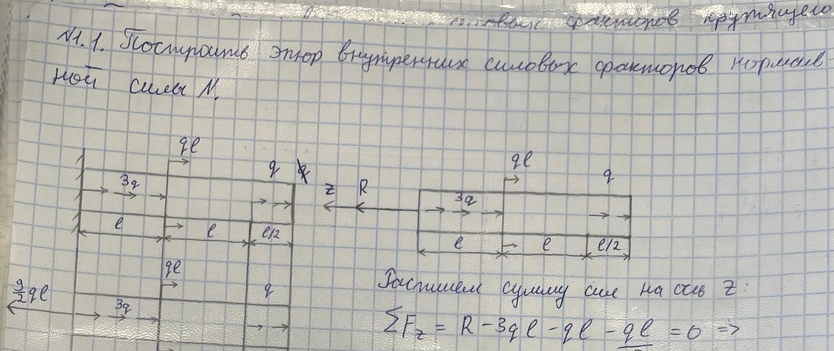 факторов крутящего
№1.1. Построить эпюр внутренних силовых факторов нормаль
ной силы N.
ql
q
3q
l
l
l/2
z
R
ql
q
3q
l
l
l/2
ql
q
9/2 ql
3q
Распишем сумму сил на ось z:
ΣFz = R - 3ql - ql - ql = 0 =>